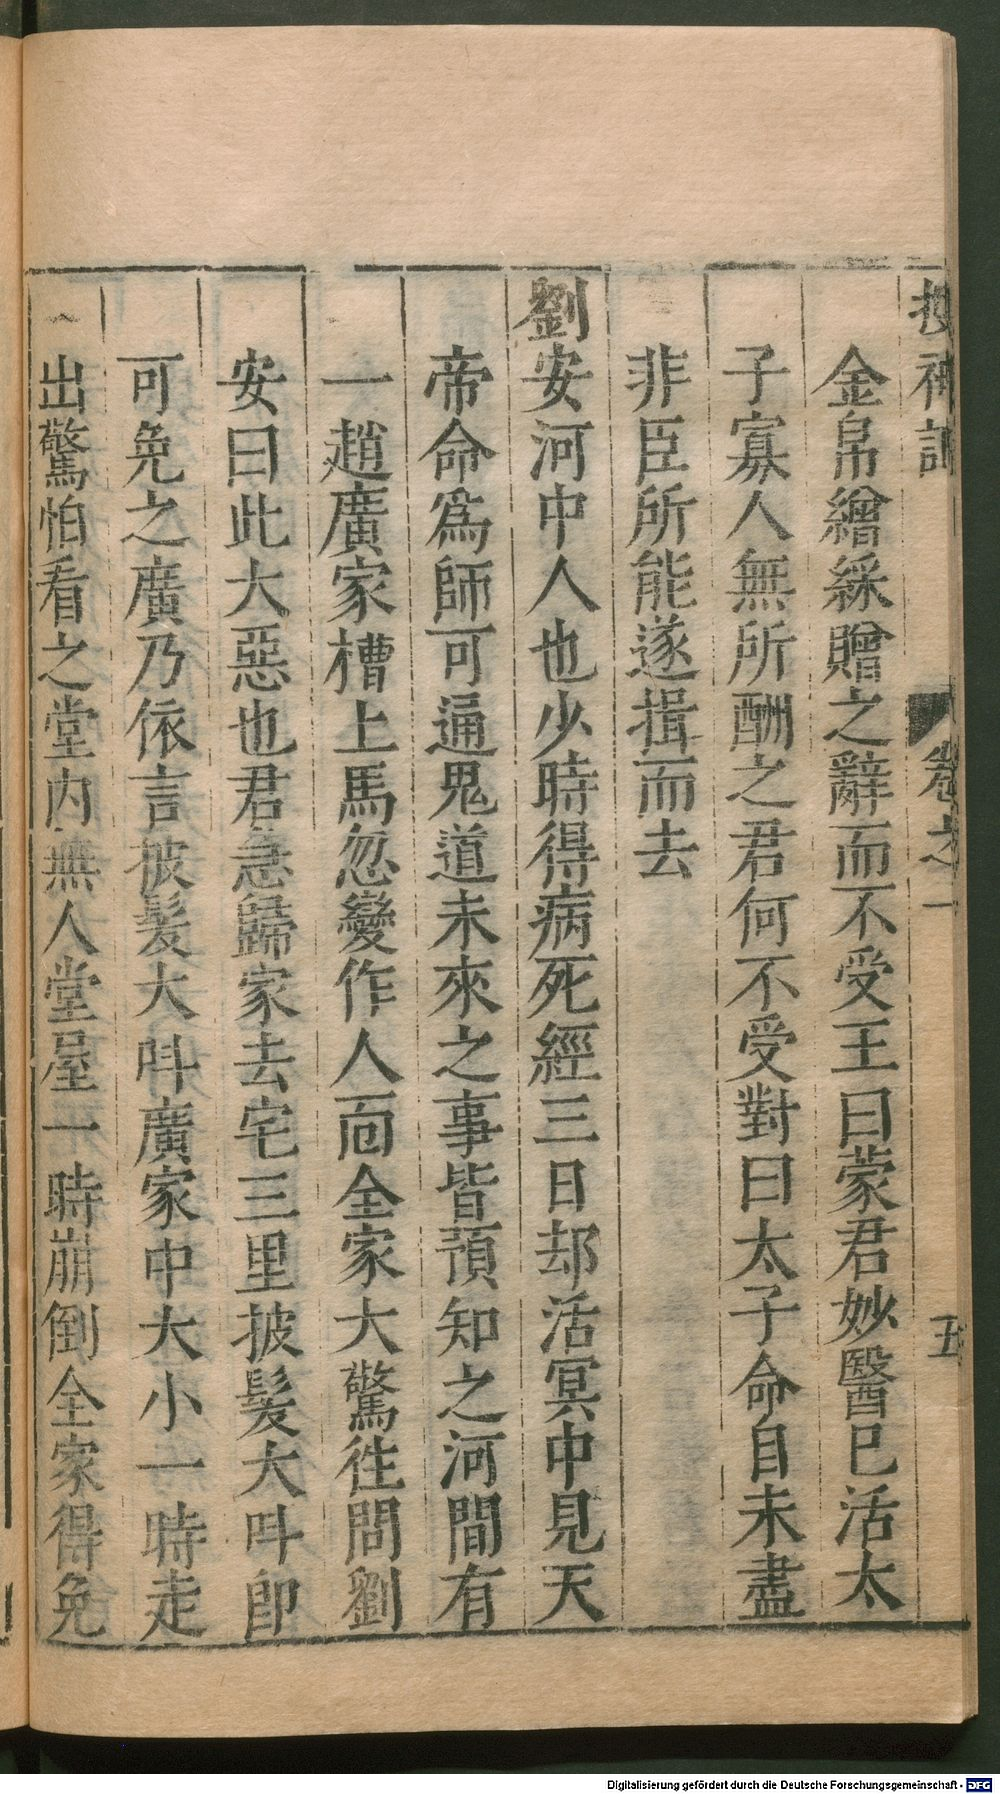 搜神記 卷之一 五
金帛繒綵贈之辭而不受王曰蒙君妙醫已活太
子寡人無所酬之君何不受對曰太子命自未盡
非臣所能遂揖而去
劉安河中人也少時得病死經三日却活冥中見天
帝命爲師可通鬼道未來之事皆預知之河間有
一趙廣家槽上馬忽變作人面全家大驚徃問劉
安曰此大惡也君急歸家去宅三里披髮大呌即
可免之廣乃依言披髮大呌廣家中大小一時走
出驚怕看之堂内無人堂屋一時崩倒全家得免
Digitalisierung gefördert durch die Deutsche Forschungsgemeinschaft - DFG